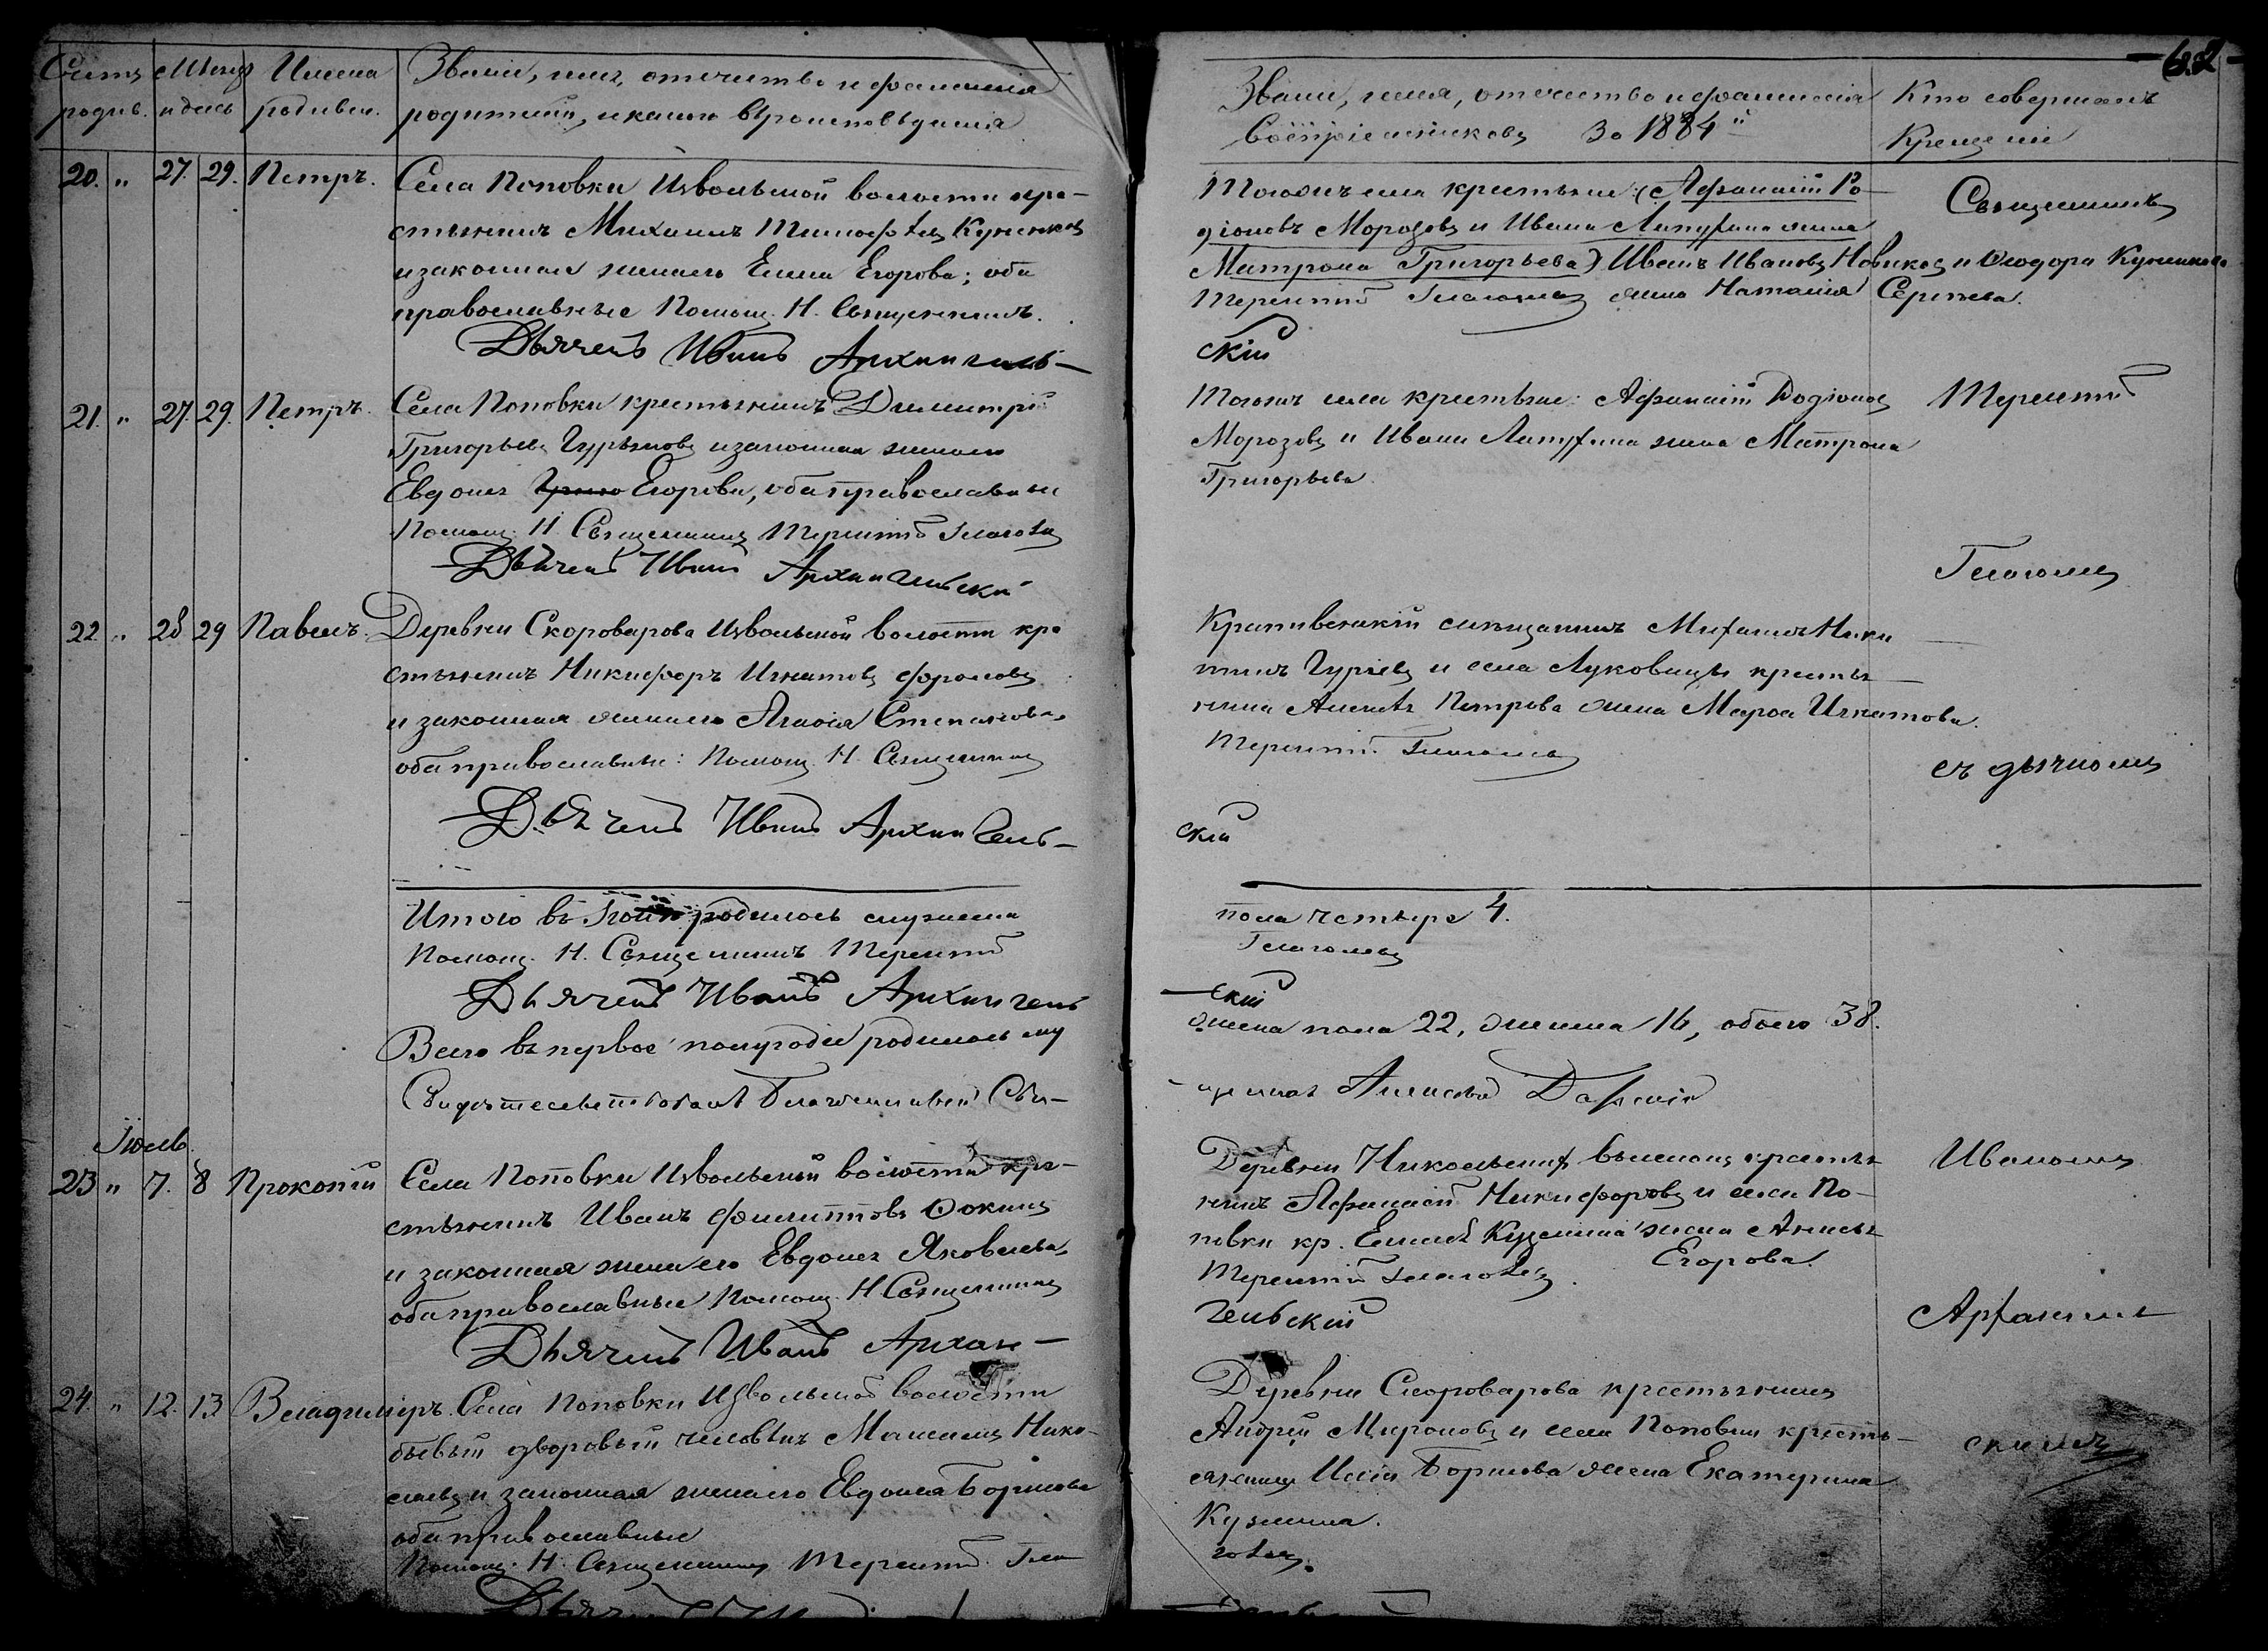 Счетъ родив. Мѣсяцъ и день Имена родивш. Званіе, имя, отчество и фамилія
родителей, и какого вѣроисповѣданія
20. " 27. 29. Петръ. Села Поповки Извольской волости кре-
стьянинъ Михаилъ Тимофѣевъ
и законная жена его Елена Егорова; оба
православные Помощ. Н. Священникъ.
Дьячекъ Иванъ Архангель-
21. " 27. 29. Петръ. Села Поповки крестьянинъ Димитрій
Григорьевъ Гурьяновъ и законная жена его
Евдокія Егорова, оба православные
Помощ. Н. Священникъ Терентій Глаголевъ
Дьячекъ Иванъ Архангельскій
22 " 28 29 Павелъ. Деревни Скороварова Извольской волости кре
стьянинъ Никифоръ Игнатовъ Фроловъ
и законная жена его Агафія Степанова,
оба православные: Помощ. Н. Священникъ
Дьячекъ Иванъ Архангель-
Итого въ Іюнѣ родилось мужеска
Помощ. Н. Священникъ Терентій
Дьячекъ Иванъ Архангель
Всего въ первое полугодіе родилось му
Свидѣтельствовалъ Благочинный Свя-
Іюль.
23 " 7. 8 Прокопій Села Поповки Извольской волости кре-
стьянинъ Иванъ Филипповъ Ѳокинъ
и законная жена его Евдокія Яковлева,
оба православные Помощ. Н. Священникъ
Дьячекъ Иванъ Архан-
24. " 12. 13. Владиміръ. Села Поповки Извольской волости
бывый дворовый человѣкъ Нико-
лаевъ и законная жена его Евдокія Борисова
оба православные
Помощ. Н. Священникъ Терентій Гла
-62-
Званіе, имя, отчество и фамилія Кто совершалъ
Воспріемниковъ За 1884 й Крещеніе
Того же села крестьяне (Афанасій Ро- Священникъ
діоновъ Морозовъ и Ивана Лапухина жена
Матрона Григорьева) Иванъ Ивановъ Новиковъ и Ѳеодора
Терентій Глаголевъ жена Наталія Сергѣева.
скій
Того же села крестьяне: Афанасій Родіоновъ Терентій
Морозовъ и Ивана Лапухина жена Матрона
Григорьева.
Глаголевъ
Крапивенскій мѣщанинъ Михаилъ Ники
тинъ Гурьевъ и села Луковицъ крестья
нина Алексѣя Петрова жена Марѳа Игнатова.
Терентій Глаголевъ
съ дьячкомъ
скій
пола четыре 4.
Глаголевъ
скій
жеска пола 22, женска 16, обоего 38.
щенникъ Алексѣй
Деревни Никольскихъ выселокъ крестья Иваномъ
нинъ Афанасій Никифоровъ и села По-
повки кр. Кузмина жена Анисья
Егорова.
Терентій Глаголевъ
гельскій Архангель
Деревни Скороварова крестьянинъ
Андрей Мироновъ и села Поповки кресть-
янина Борисова жена Екатерина скимъ
Кузмина.
голевъ.